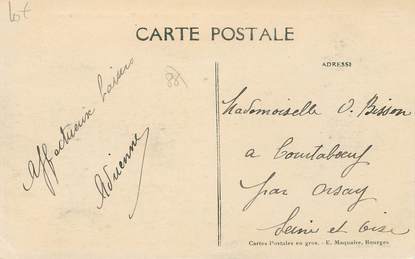 lot
CARTE POSTALE
ADRESSE
(88)
Affectueux baisers
Adrienne
Mademoiselle O. Bisson
a Courtabœuf
par Orsay
Seine et Oise
Cartes Postales en gros. - E. Maquaire, Bourges